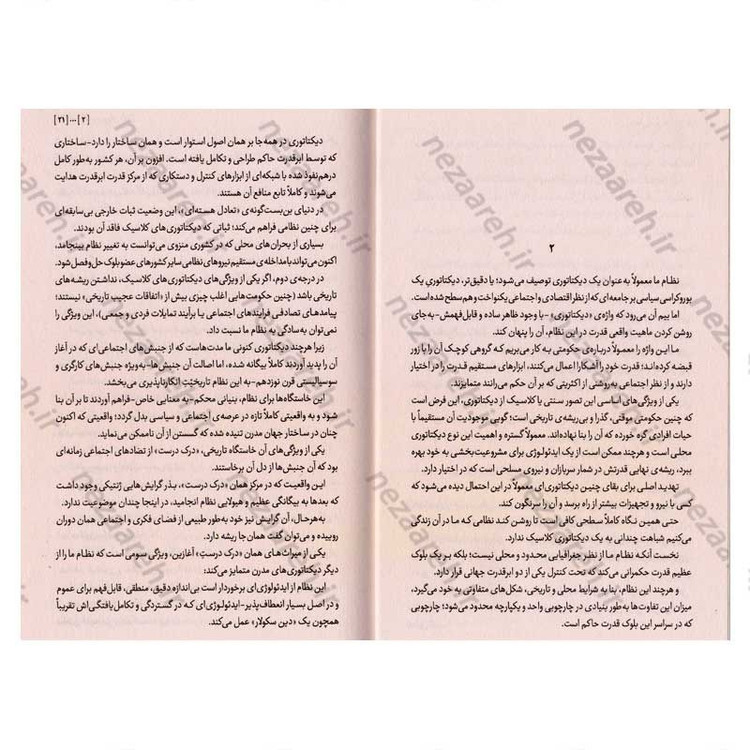 ۲
نظام ما معمولاً به‌عنوان یک دیکتاتوری توصیف می‌شود؛ یا دقیق‌تر، دیکتاتوریِ یک
بوروکراسی سیاسی بر جامعه‌ای که از نظر اقتصادی و اجتماعی یکنواخت و هم‌سطح شده است.
اما بیم آن می‌رود که واژه‌ی «دیکتاتوری» -با وجود ظاهر ساده و قابل‌فهمش- به‌جای
روشن کردن ماهیت واقعی قدرت در این نظام، آن را پنهان کند.
ما این واژه را معمولاً درباره‌ی حکومتی به کار می‌بریم که گروهی کوچک آن را با زور
قبضه کرده‌اند؛ قدرت خود را آشکارا اعمال می‌کنند، ابزارهای مستقیم قدرت را در اختیار
دارند و از نظر اجتماعی به‌روشنی از اکثریتی که بر آن حکم می‌رانند متمایزند.
یکی از ویژگی‌های اساسی این تصور سنتی یا کلاسیک از دیکتاتوری، این فرض است
که چنین حکومتی موقتی، گذرا و بی‌ریشه‌ی تاریخی است؛ گویی موجودیت آن مستقیماً با
حیات افرادی گره خورده که آن را بنا نهاده‌اند. معمولاً گستره و اهمیت این نوع دیکتاتوری
محلی است و هرچند ممکن است از یک ایدئولوژی برای مشروعیت‌بخشی به خود بهره
ببرد، ریشه‌ی نهایی قدرتش در شمار سربازان و نیروی مسلحی است که در اختیار دارد.
تهدید اصلی برای بقای چنین دیکتاتوری‌ای معمولاً در این احتمال دیده می‌شود که
کسی با نیرو و تجهیزات بیشتر از راه برسد و آن را سرنگون کند.
حتی همین نگاه کاملاً سطحی کافی است تا روشن کند نظامی که ما در آن زندگی
می‌کنیم شباهت چندانی به یک دیکتاتوری کلاسیک ندارد.
نخست آنکه نظام ما از نظر جغرافیایی محدود و محلی نیست؛ بلکه بر یک بلوک
عظیم قدرت حکمرانی می‌کند که تحت کنترل یکی از دو ابرقدرت جهانی قرار دارد.
و هرچند این نظام، بنا به شرایط محلی و تاریخی، شکل‌های متفاوتی به خود می‌گیرد،
میزان این تفاوت‌ها به‌طور بنیادی در چارچوبی واحد و یکپارچه محدود می‌شود؛ چارچوبی
که در سراسر این بلوک قدرت حاکم است.
[۲]...[۲۱]
دیکتاتوری در همه‌جا بر همان اصول استوار است و همان ساختار را دارد-ساختاری
که توسط ابرقدرت حاکم طراحی و تکامل یافته است. افزون بر آن، هر کشور به‌طور کامل
درهم‌نفوذ شده با شبکه‌ای از ابزارهای کنترل و دستکاری که از مرکز قدرت ابرقدرت هدایت
می‌شوند و کاملاً تابع منافع آن هستند.
در دنیای بن‌بست‌گونه‌ی «تعادل هسته‌ای»، این وضعیت ثبات خارجی بی‌سابقه‌ای
برای چنین نظامی فراهم می‌کند؛ ثباتی که دیکتاتوری‌های کلاسیک فاقد آن بودند.
بسیاری از بحران‌های محلی که در کشوری منزوی می‌توانست به تغییر نظام بینجامد،
اکنون می‌تواند با مداخله‌ی مستقیم نیروهای نظامی سایر کشورهای عضو بلوک حل‌وفصل شود.
در درجه‌ی دوم، اگر یکی از ویژگی‌های دیکتاتوری‌های کلاسیک، نداشتن ریشه‌های
تاریخی باشد (چنین حکومت‌هایی اغلب چیزی بیش از «اتفاقات عجیب تاریخی» نیستند؛
پیامدهای تصادفی فرایندهای اجتماعی یا برآیند تمایلات فردی و جمعی)، این ویژگی را
نمی‌توان به‌سادگی به نظام ما نسبت داد.
زیرا هرچند دیکتاتوری کنونی ما مدت‌هاست که از جنبش‌های اجتماعی‌ای که در آغاز
آن را پدید آوردند کاملاً بیگانه شده، اما اصالت آن جنبش‌ها-به‌ویژه جنبش‌های کارگری و
سوسیالیستی قرن نوزدهم-به این نظام تاریخیّت انکارناپذیری می‌بخشد.
این خاستگاه‌ها برای نظام، بنیانی محکم-به معنایی خاص-فراهم آوردند تا بر آن بنا
شود و به واقعیتی کاملاً تازه در عرصه‌ی اجتماعی و سیاسی بدل گردد؛ واقعیتی که اکنون
چنان در ساختار جهان مدرن تنیده شده که گسستن از آن ناممکن می‌نماید.
یکی از ویژگی‌های آن خاستگاه تاریخی، «درک درست» از تضادهای اجتماعی زمانه‌ای
بود که آن جنبش‌ها از دل آن برخاستند.
این واقعیت که در مرکز همان «درک درست»، بذر گرایش‌هایی ژنتیکی وجود داشت
که بعدها به بیگانگی عظیم و هیولایی نظام انجامید، در اینجا چندان موضوعیت ندارد.
به‌هرحال، آن گرایش نیز خود به‌طور طبیعی از فضای فکری و اجتماعی همان دوران
روییده و می‌توان گفت همان‌جا ریشه دارد.
یکی از میراث‌های همان «درک درست» آغازین، ویژگی سومی است که نظام ما را از
دیگر دیکتاتوری‌های مدرن متمایز می‌کند:
این نظام از ایدئولوژی‌ای برخوردار است بی‌اندازه دقیق، منطقی، قابل‌فهم برای عموم
و در اصل بسیار انعطاف‌پذیر-ایدئولوژی‌ای که در گستردگی و تکامل‌یافتگی‌اش تقریباً
همچون یک «دین سکولار» عمل می‌کند.
nezaareh.ir